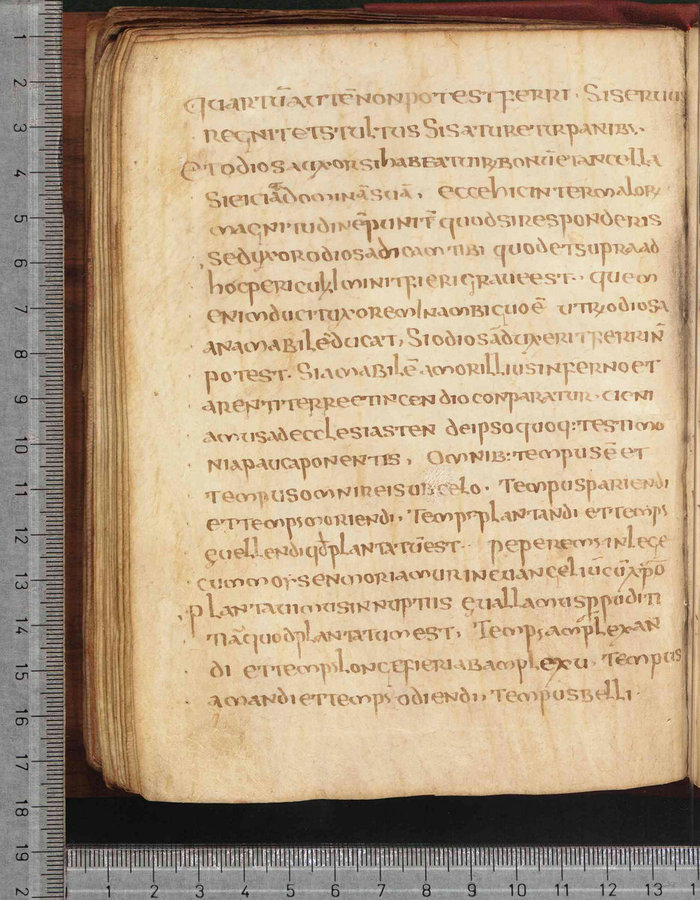 quartū autē non potest ferri . Si seruus
regnit et stultus Si saturetur panib;.
Et odiosa uxor si habeat uirū bonū et ancella
si eiciat dominā suā , ecce hic inter malorū
magnitudinē punit̄ quod si responderis
sed uxor odiosa dicam tibi quod et supra ad
hoc periculū minitri eri graue est . quem
enim ducit uxorem in ambiguo ē utrū odiosa
an amabilē ducat , Si odiosā duxerit ferri ñ
potest . Si amabilē amor illius inferno et
arenti terre et incendio conparatur .
amus ad ecclesiasten de ipso quoq: testimo
nia pauca ponentis , Omnib: tempus ē et
tempus omni rei sub celo . Tempus pariendi
et temps moriendi , Temps plantandi et temps
euellendi qđ plantatū est . peperems in lege
cum moysen moriamur in euangeliū cū xpō
plantauimus in nuptiis euallamus p pudici
tiā quod plantatum est , Temps amplexan
di et temps longe fieri ab amplexu . Tempus
amandi et temps odiendi , Tempus belli .